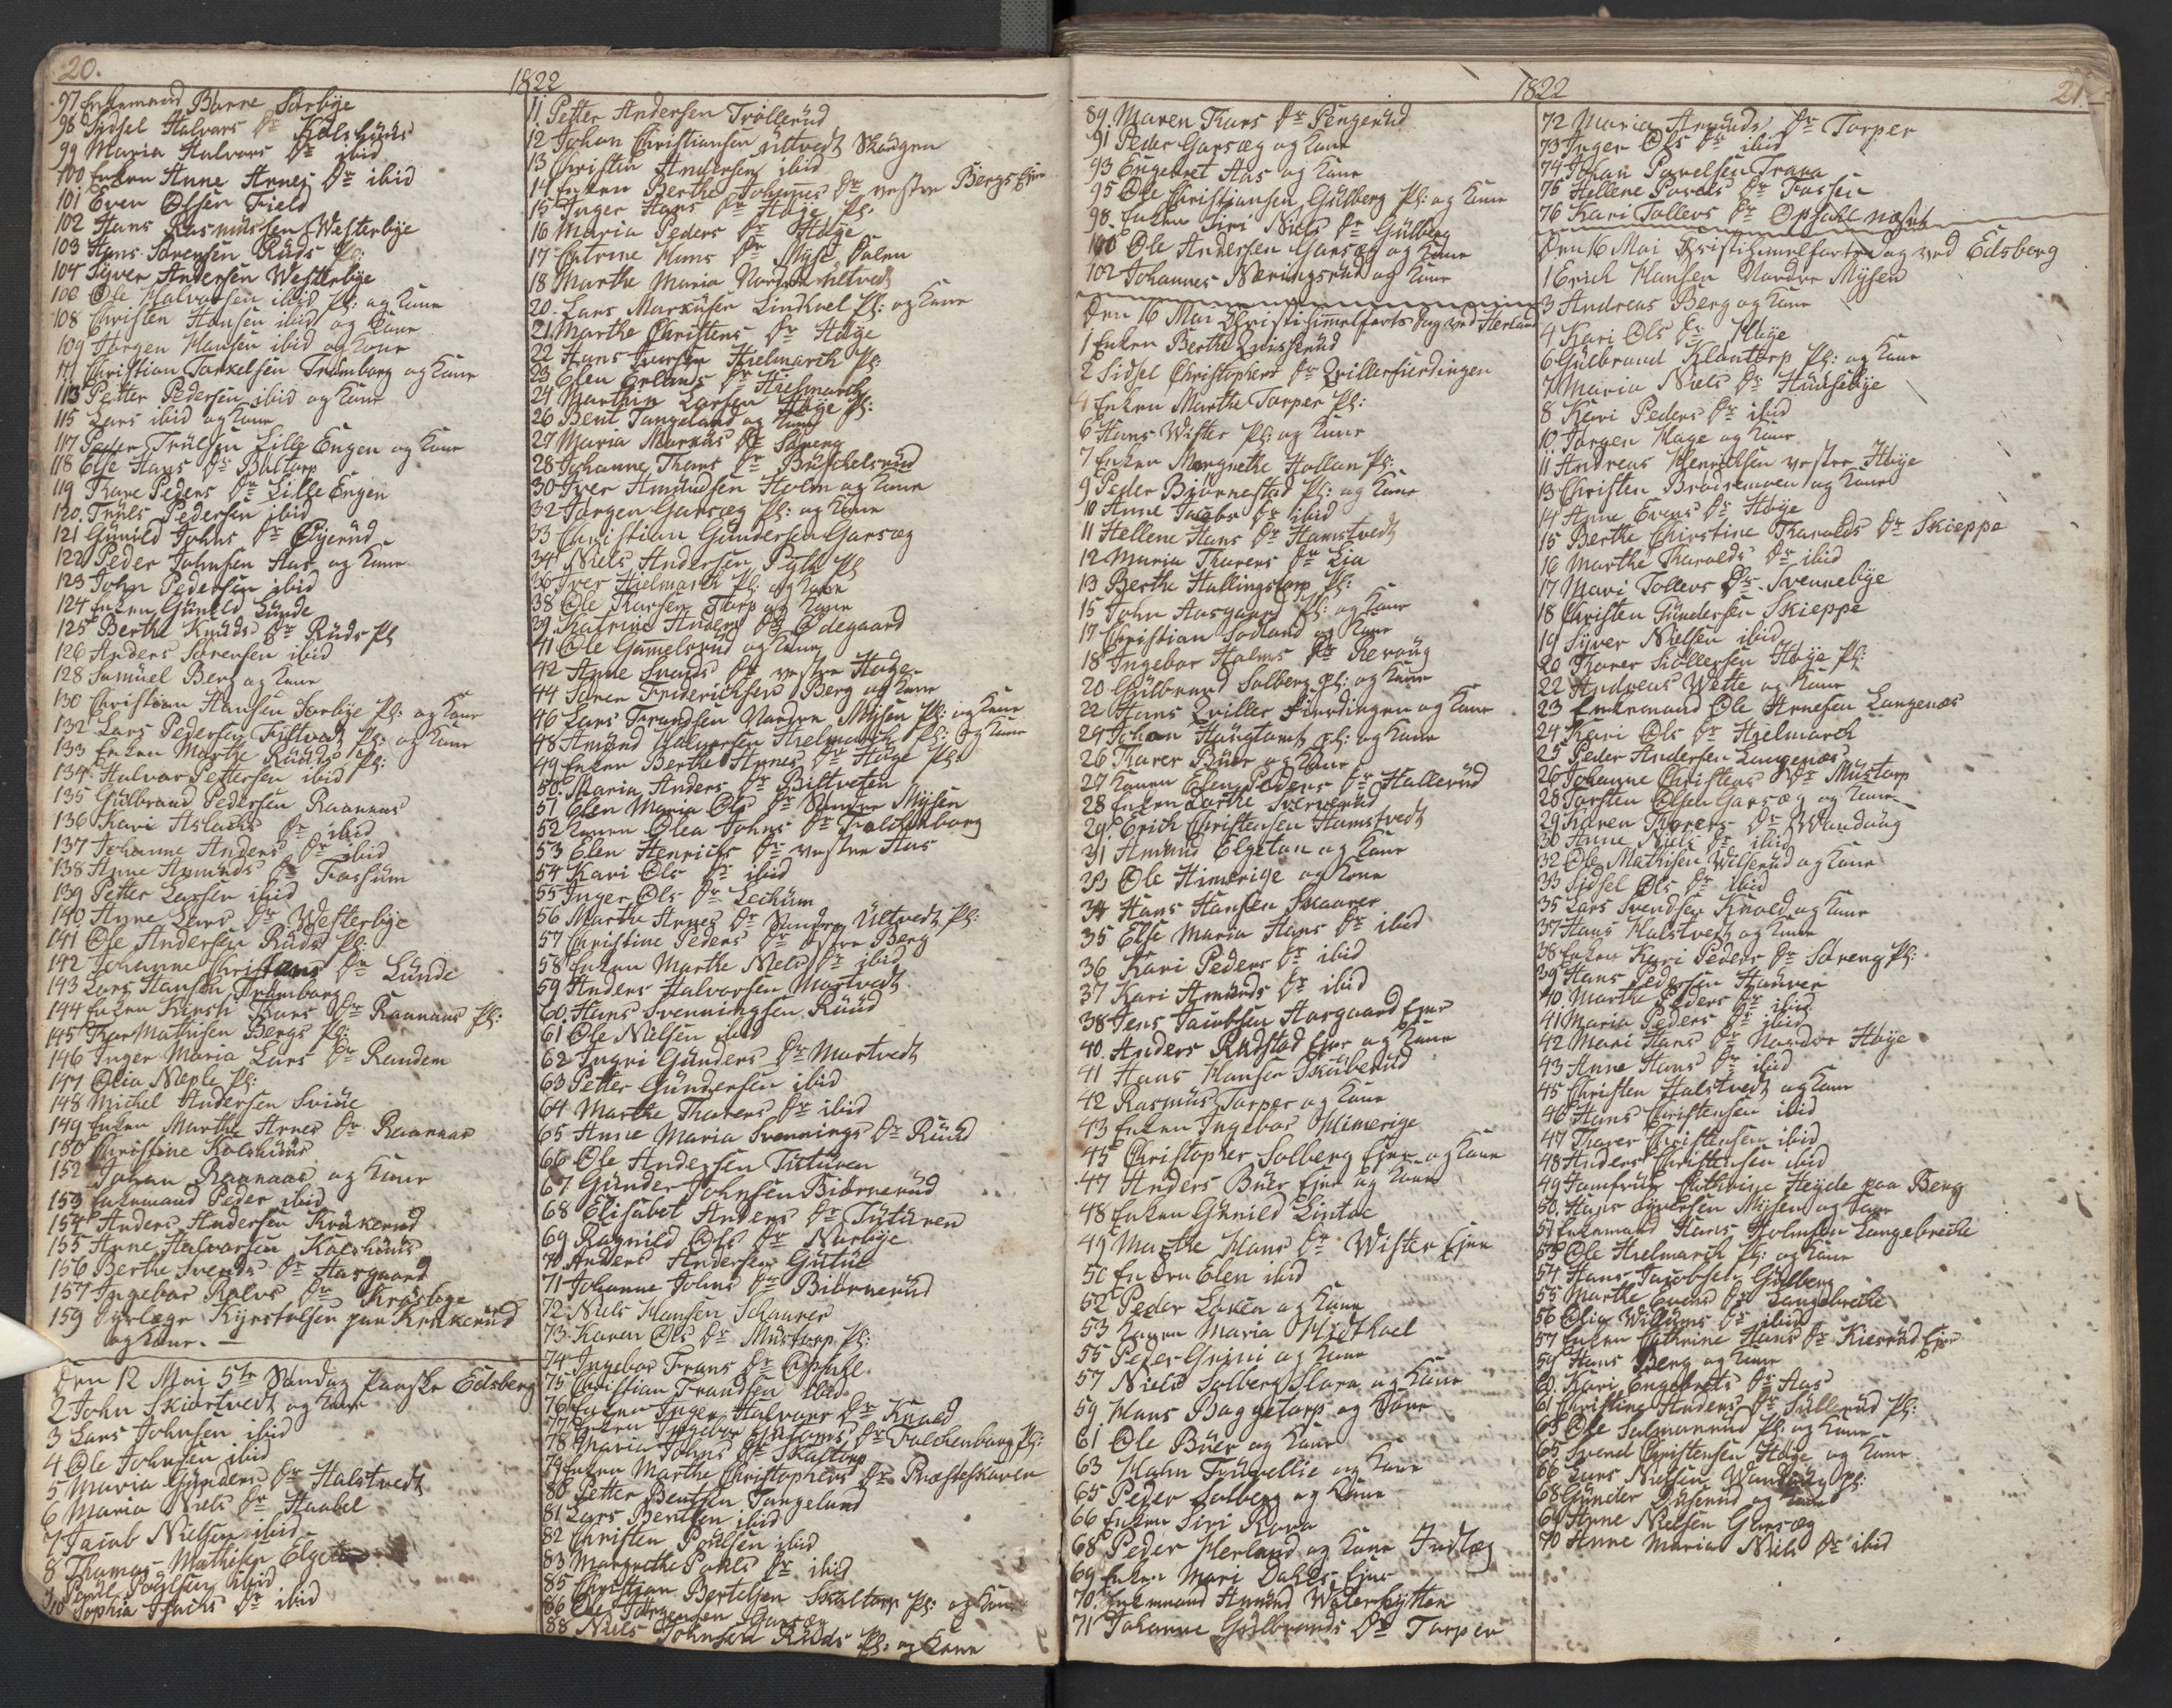 20.
1822
97 Enkemand Borre Sorbye
98 Sidsel Halvors Dr Kolshuus
99 Maria Halvors Dr ibid
100 Enken Anne Arnes Dr ibid
101 Even Olsen Field
102 Hans Rasmussen Westerbye
103 Hans Sørensen Ruds Pl:
104 Syver Andersen Westerbye
106 Ole Halvorsen ibid Pl: og Kone
108 Christen Hansen ibid og Kone
109 Jørgen Hansen ibid og Kone
111 Christian Torkelsen Trømborg og Kone
113 Petter Pedersen ibid og Kone
115 Lars ibid og Kone
117 Peder Truelsen Lille Engen og Kone
118 Else Hans Dr Bøltorp
119 Thore Peders Dr Lille Engen
120. Truls Pedersen ibid
121 Gunild Johns Dr Øyerud
122 Peder Johnsen Aas og Kone
123 John Pedersen ibid
124 Enken Gunild Lunde
125 Berthe Knuds Dr Ruds Pl
126 Anders Sørensen ibid
128 Samuel Berg og Kone
130 Christian Hansen Sorbye Pl: og Kone
132 Lars Pedersen Fistvedt Pl: og Kone
133 Enken Marthe Ruuds Pl:
134 Halvor Pettersen ibid
135 Gulbrand Pedersen Raanaas
136 Kari Aslachs Dr ibid
137 Johanne Anders Dr ibid
138 Anne Amunds Dr Fossum
139 Petter Larsen ibid
140. Anne Lars Dr Westerbye
141 Ole Andersen Ruds Pl:
142 Johanne Christens Dr Lunde
143 Lars Hansen Trømborg
144 Enken Kirsti Thors Dr Raanaas Pl:
145 Thor Mathisen Bergs Pl:
146 Inger Maria Lars Dr Randem
147 Olia Næple Pl:
148 Michel Andersen Sviue
149 Enken Marthe Arnes Dr Raanaas
150 Christine Kolshuus
152 Johan Raanaas og Kone
153 Enkemand Peder ibid
154 Anders Andersen Kråkerud
155 Anne Halvorsen Kolshuus
156 Berthe Svends Dr Aasgaard
157 Ingebor Rolvs Dr Kråsbye
159 Kyrstolsen paa Krakerud
og Kone. —
Den 12 Mai 5te Søndag Paaske Eidsberg
2 John Skiørtvedt og Kone
3 Lars Johnsen ibid
4 Ole Johnsen ibid
5 Maria Gunders Dr Halstvedt
6 Maria Niels Dr Haabel
7 Jacob Nielsen ibid
8 Thomas Mathisen Elgeton
9 Povel Poulsen ibid
10 Sophia Isachs Dr ibid
11 Petter Andersen Trollerud
12 Johan Christiansen Ultvedt Skougen
13 Christin Andersen ibid
14 Enken Berthe Johannes Dr vestre Bergs Eje
15 Inger Hans Dr Høje Pl:
16 Maria Peders Dr Høye
17 Chatrine Hans Dr Myse Døien
18 Marthe Maria Nordre Ultvedt
20. Lars Markusen Lindhoel Pl: og Kone
21 Marthe Christens Dr Høye
22 Hans Iversen Hielmarck Pl:
23 Elen Erlands Dr Hielmarck
24 Marthin Larsen Høye Pl:
26 Bent Tangeland og Kone
27 Maria Markus Dr Soreng
28 Johanne Thors Dr Buskelsrud
30 Iver Amundsen Holm og Kone
32 Jørgen Garsæg Pl: og Kone
33 Christian Gundersen Garsæg
34 Niels Andersen Pytt Pl
36 Iver Hielmarck Pl: og Kone
38 Ole Thorsen Torp og Kone
39 Kathrine Anders Dr Ødegaard
41 Ole Gamelsrud og Kone
42 Anne Svends Dr vestre Høye
44 Søren Friderichsen Berg og Kone
46 Lars Trondsen Nordre Mysen Pl: og Kone
48 Amund Halvorsen Hielmarck Pl: og Kone
49 Enken Berthe Arnes Dr Høye Pl:
50. Maria Anders Dr Biltveten
51 Elen Maria Ols Dr Søndre Mysen
52 Konen Olea Johns Dr Falckenborg
53 Elen Henrichs Dr vestre Aas
54 Kari Ols Dr ibid
55 Inger Ols Dr Lechum
56 Marthe Arnes Dr Søndre Ultvedt Pl:
57 Christine Peders Dr østre Berg
58 Enken Marthe Niels Dr ibid
59 Anders Halvorsen Mortvedt
60. Hans Svenningsen Ruud
61 Ole Nielsen ibid
62 Ingri Gunders Dr Mortvedt
63 Petter Gundersen ibid
64 Marthe Thorers Dr ibid
65 Anne Maria Svennings Dr Ruud
66 Ole Andersen Tituren
67 Gunder Johnsen Biørnerud
68 Elisabet Anders Dr Tyturen
69 Ragnild Ols Dr Narbye
70. Anders Andersen Gutue
71 Johanne Johns Dr Biørnerud
72 Niels Hansen Schaarer
73. Karen Ols Dr Mustorp Pl:
74 Ingebor Frans Dr Opsahl
75 Christian Trandsen ibid
76 Enken Inger Halvors Dr Knold
77 Enken Ingebor Dr Falchenborg Pl:
78 Maria Johns Dr Skaltorp
79 Enken Marthe Christophers Dr Præsteskoven
80 Petter Bentsen Tangeland
81 Lars Bentsen ibid
82 Christen Poulsen ibid
83 Margrethe Pouls Dr ibid
85 Christian Bertelsen Skaltorp Pl: og Kone
86 Ole Jørgensen Garsæg
88 Niels Johnsen Ruds Pl: og Kone
1822
21.
89. Maren Thors Dr Pengerud
91 Peder Garsæg og Kone
93 Engebret Aas og Kone
95 Ole Christiansen Gulberg Pl: og Kone
98. Enken Siri Niels Dr Gulberg
100 Ole Andersen Garsæg og Kone
102 Johannes Næringsrud og Kone
Den 16 Mai Christihimmelfarts Dag ved Herland
1 Enken Berthe Qvisserud
2 Sidsel Christophers Dr Qvillerfierdingen
4 Enken Marthe Torper Pl:
6 Hans Wister Pl: og Kone
7 Enken Margrethe Hollan Pl:
9 Peder Biørnestad Pl: og Kone
10 Anne Jacobs Dr ibid
11 Hellene Hans Dr Hamstvedt
12 Maria Thorers Dr Lia
13 Berthe Hallingstorp Pl:
15 John Aasgaard Pl: og Kone
17 Christian Sodland og Kone
18 Ingebor Holms Dr Revoug
20 Gulbrand Solberg Pl: og Kone
22 Hans Qviller Fierdingen og Kone
24 Johan Haugtomt Pl: og Kone
26 Thorer Buer og Kone
27 Konen Elen Peders Dr Hallerud
28 Enken Dorthe Sververud
29. Erich Christensen Hamstvedt
31 Amund Elgeton og Kone
33 Ole Himerige og Kone
34 Hans Hansen Skaarer
35 Else Maria Hans Dr ibid
36 Kari Peders Dr ibid
37 Kari Amunds Dr ibid
38 Jens Jacobsen Aasgaard Ejer
40. Anders Rudstad Ejer og Kone
41 Hans Hansen Skuberud
42 Rasmus Torper og Kone
43 Enken Ingebor Himerige
45 Christopher Solberg Ejer og Kone
47 Anders Buer Ejer og Kone
48 Enken Gunild Lintoe
49 Marthe Hans Dr Wister Ejer
50 Enken Elen ibid
52 Peder Løken og Kone
53 Konen Maria Midthoel
55 Peder Grini og Kone
57 Niels Solberg Slora og Kone
59. Hans Baggetorp og Kone
61 Ole Buer og Kone
63 Hahn Truggellie og Kone
65 Peder Solberg og Kone
66 Enken Siri Rova
68 Peder Herland og Kone Indlæg
69 Enken Mari Dahls Ejer
70. Enkemand Amund Waterhytten
71 Johanne Gudbrands Dr Torper
72 Maria Amunds Dr Torper
73 Inger Ols Dr ibid
74 Johan Povelsen Trara
75 Hellene Povels Dr Fossen
76 Kari Tollevs Dr Opsahl næset
Den 16 Mai Christihimmelfartsdag ved Edsberg
1 Erich Hansen Nordre Mysen
3 Andreas Berg og Kone
4 Kari Ols Dr Høye
6 Gulbrand Klontorp Pl: og Kone
7 Maria Niels Dr Huusebye
8 Kari Peders Dr ibid
10 Jørgen Hage og Kone
11 Andreas Henrichsen vestre Høye
13 Christen Brødremoen og Kone
14 Anne Evens Dr Høye
15 Berthe Christine Tharalds Dr Skieppe
16 Marthe Tharalds Dr ibid
17 Mari Tollevs Dr Svennebye
18 Christen Gundersen Skieppe
19 Syver Nielsen ibid
20 Thorer Kiøllersen Høye Pl:
22 Andreas Wette og Kone
23 Enkemand Ole Arnesen Langenæs
24 Kari Ols Dr Hielmarck
25 Peder Andersen Langenæs
26 Johanne Christens Dr Mustorp
28 Torsten Olsen Garsæg og Kone
29 Karen Thorers Dr Wandaug
30 Anne Niels Dr ibid
32 Ole Mathisen Wilserud og Kone
33 Sidsel Ols Dr ibid
35 Lars Svendsen Knold og Kone
37 Hans Halstvedt og Kone
38 Enken Kari Peders Dr Soreng Pl:
39 Hans Pedersen Hauver
40. Marthe Peders Dr ibid
41 Maria Peders Dr ibid
42 Mari Hans Dr Nordre Høye
43 Anne Hans Dr ibid
45 Christen Halstvedt og Kone
46 Hans Christensen ibid
47 Thorer Christensen ibid
48 Anders Christensen ibid
49 Jomfrue Cathrine Heyde paa Berg
50. Hans Syversen Mysen og Kone
51 Enkemand Hans Holmsen Langebreche
53 Ole Hielmarck Pl: og Kone
54. Hans Jacobsen Gulberg
55 Marthe Evens Dr Langebreche
56 Olia Willums Dr ibid
57 Enken Cathrine Hans Dr Kiesrud Ejer
59 Hans Berg og Kone
60. Kari Engebrets Dr Aas
61 Christine Anders Dr Sullerud Pl:
63 Ole Salmonrud Pl: og Kone
65 Svend Christensen Høye og Kone
66 Lars Nielsen Wandaug Pl:
68 Gunder Duserud og Kone
69 Anne Nielsen Garsæg
70 Anne Maria Niels Dr ibid